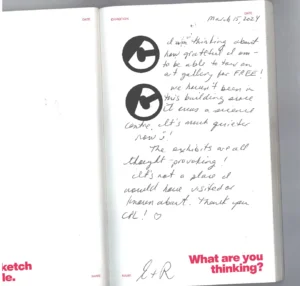 March 15, 2024
I was thinking about
how grateful I am
to be able to tour an
art gallery for FREE!
We haven't been in
this building since
it was a science
centre. It's much quieter
now :)!
The exhibits were all
thought-provoking!
It's not a place I
would have visited or
known about. Thank you
CPL! ♡
E+R
What are you
thinking?
ketch
le.